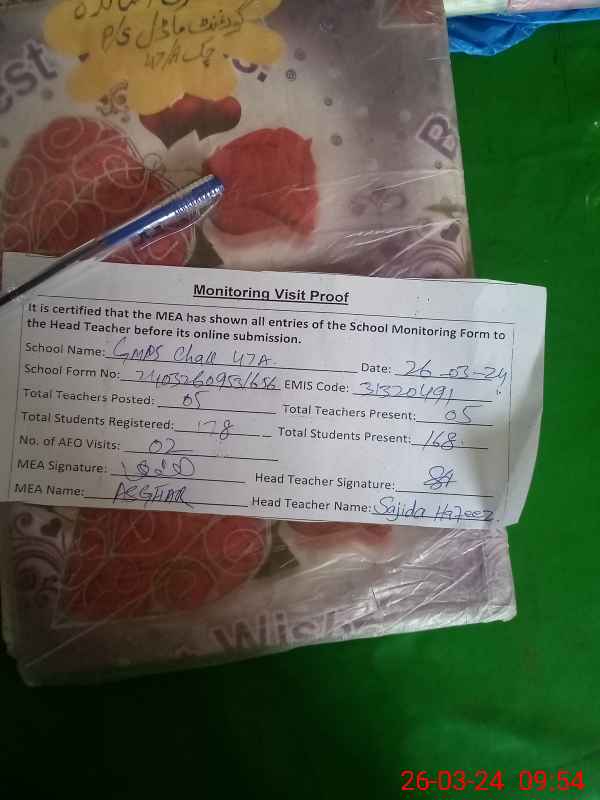 گورنمنٹ ماڈل P/S
چک 47/A
est
B
Monitoring Visit Proof
It is certified that the MEA has shown all entries of the School Monitoring Form to
the Head Teacher before its online submission.
School Name: GMPS Chak 47A. Date: 26-03-24
School Form No: 2403260953/656 EMIS Code: 31320491
Total Teachers Posted: 05 Total Teachers Present: 05
Total Students Registered: 178 Total Students Present: 168
No. of AEO Visits: 02
MEA Signature: Head Teacher Signature:
MEA Name: ASGHAR Head Teacher Name: Sajida Hafeez.
Wish
26-03-24 09:54